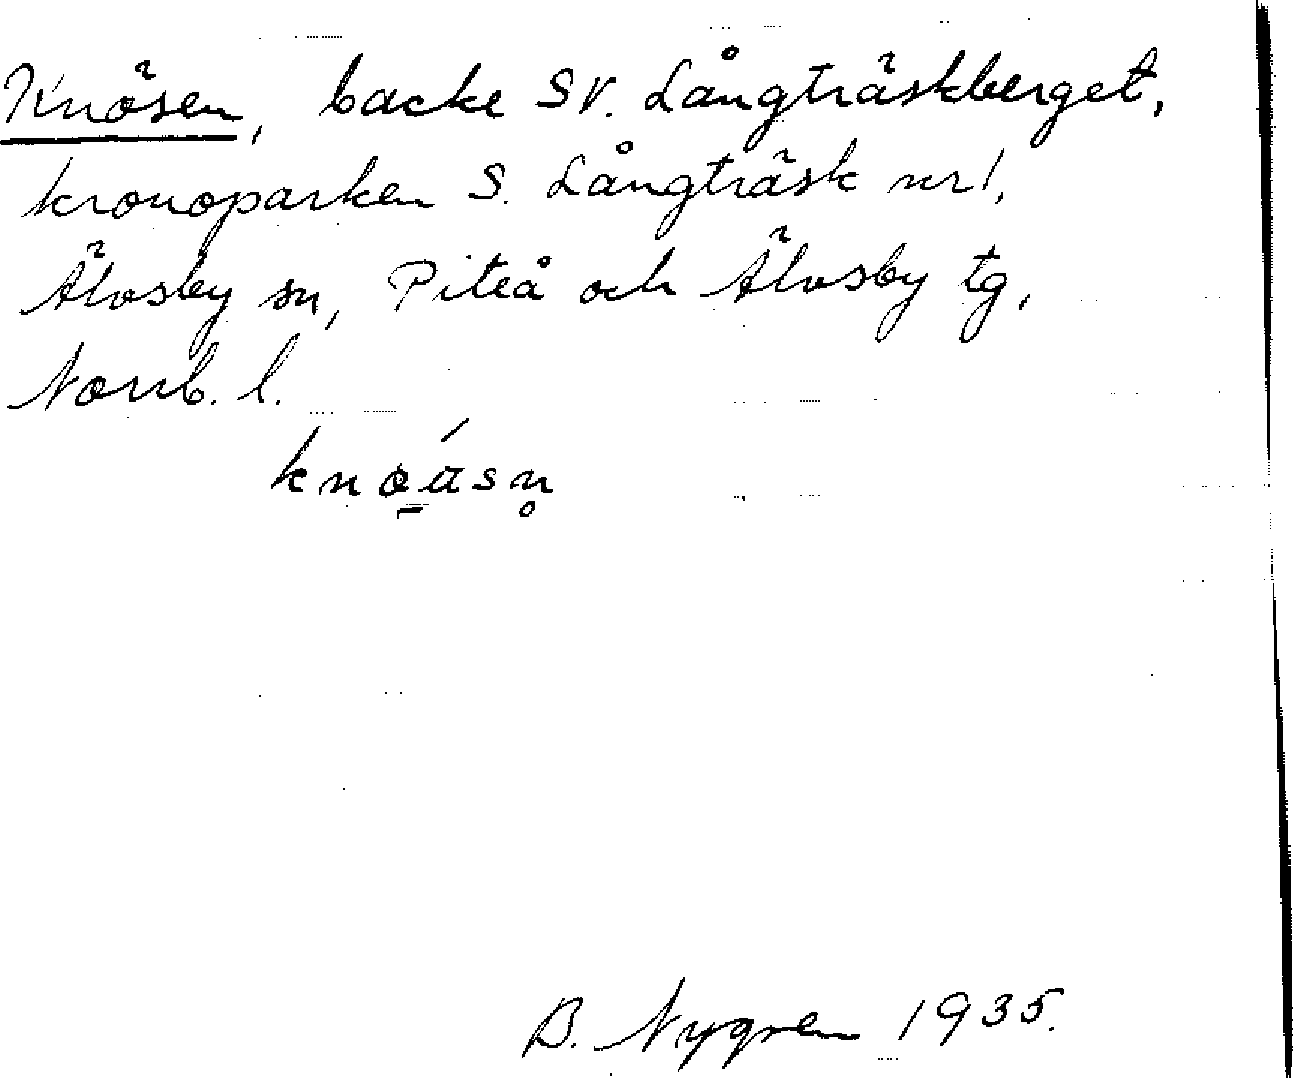 Knösen, backe SV. Långträskberget,
kronoparken S. Långträsk nr 1,
Älvsby sn, Piteå och Älvsby tg,
Norrb. l.
B. Nygren 1935.